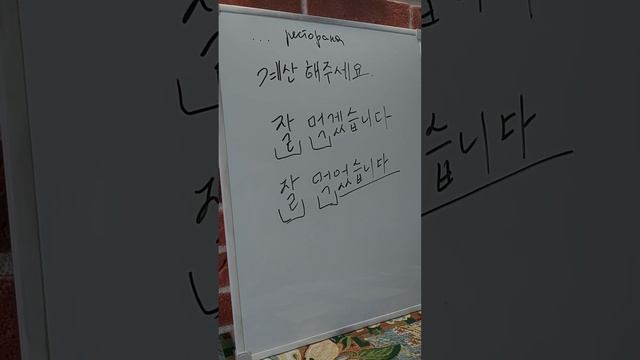 ... ресторана
계산 해주세요.
잘 먹겠습니다
잘 먹었습니다